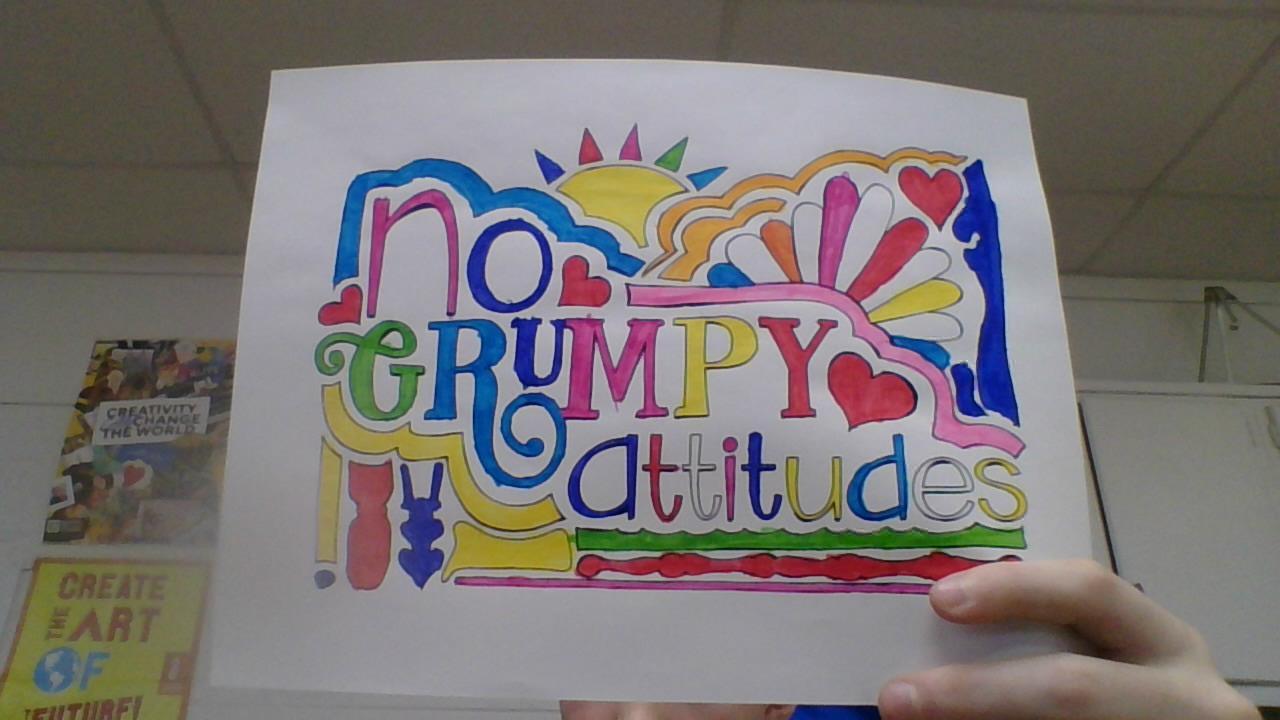 no
GRUMPY
attitudes
CREATIVITY
CHANGE
THE WORLD
CREATE
THE ART
OF
FUTURE!